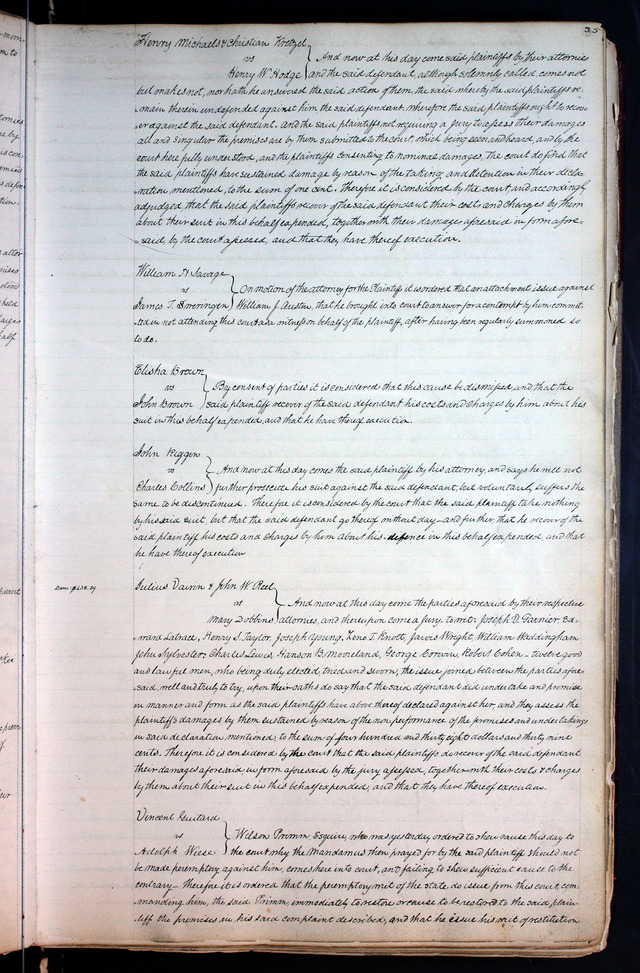 35
Henry Michaels & Christian Kretzel
vs And now at this day come said plaintiffs by their attornies
Henry W. Hodge and the said defendant, although solemnly called, comes not
but makes not, nor hath he answered the said action of them, the said whereby the said plaintiffs re-
main therein undefended against him the said defendant. Wherefore the said plaintiffs ought to recov-
er against the said defendant. And the said plaintiffs not requiring a jury to assess their damages
all and singular the premises are by them submitted to the court, which being seen and heard, and by the
court here fully understood, and the plaintiffs consenting to nominal damages, the court do find that
the said plaintiffs have sustained damage by reason of the taking and detention in their decla-
ration mentioned, to the sum of one cent. Therefore it is considered by the court, and accordingly
adjudged that the said plaintiffs recover of the said defendant their cost and charges by them
about their suit in this behalf expended, together with their damages aforesaid in form afore-
said, by the court assessed, and that they have thereof execution.
William H Savage
vs On motion of the attorney for the Plaintiff it is ordered that an attachment issue against
James T. Sweringen William J. Austin, that he brought into court to answer for a contempt by him commit-
ted in not attending this court as a witness on behalf of the plaintiff, after having been regularly summoned so
to do.
Elisha Brown
vs By consent of parties it is considered that this cause be dismissed, and that the
John Brown said plaintiff recover of the said defendant his costs and charges by him about his
suit in this behalf expended, and that he have thereof execution.
John Riggin
vs And now at this day comes the said plaintiff by his attorney, and says he will not
Charles Collins further prosecute his suit against the said defendant, but voluntarily suffers the
same to be discontinued. Therefore it is considered by the court that the said plaintiff take nothing
by his said suit, but that the said defendant go thereof without day - and further, that he recover of the
said plaintiff his costs and charges by him about his defence in this behalf expended, and that
he have thereof execution
Julius & John W. Reel
Dam: $438.39
vs And now at this day come the parties aforesaid by their respective
Mary Dobbins attornies, and thereupon come a jury to wit: Joseph V. Garnier, Ed-
ward Henry S. Taylor, Joseph Young, Zeno T. Knott, Jarvis Wright, William Waddingham
John Sylvester, Charles Lewis, Hanson B. Mooreland, George Corwin, Robert Cohen - twelve good
and lawful men, who being duly elected, tried and sworn, the issue joined between the parties afore-
said, well and truly to try, upon their oaths do say that the said defendant did undertake and promise
in manner and form as the said plaintiffs have above thereof declared against her, and they assess the
plaintiff's damages by them sustained by reason of the nonperformance of the promises and undertakings
in said declaration mentioned, to the sum of four hundred and thirty eight dollars and thirty nine
cents. Therefore it is considered by the court that the said plaintiffs do recover of the said defendant
their damages aforesaid in form aforesaid by the jury assessed, together with their costs & charges
by them about their suit in this behalf expended, and that they have thereof execution.
Vincent Guitard
vs Wilson Primm, Esquire, who was yesterday ordered to show cause this day to
Adolph Wiese the court why the Mandamus then prayed for by the said plaintiff should not
be made peremptory against him, comes here into court, and failing to show sufficient cause to the
contrary - therefore it is ordered that the peremptory writ of the state do issue from this court, com-
manding him, the said Primm, immediately to restore or cause to be restored to the said plain-
tiff the premises in his said complaint described, and that he issue his writ of restitution